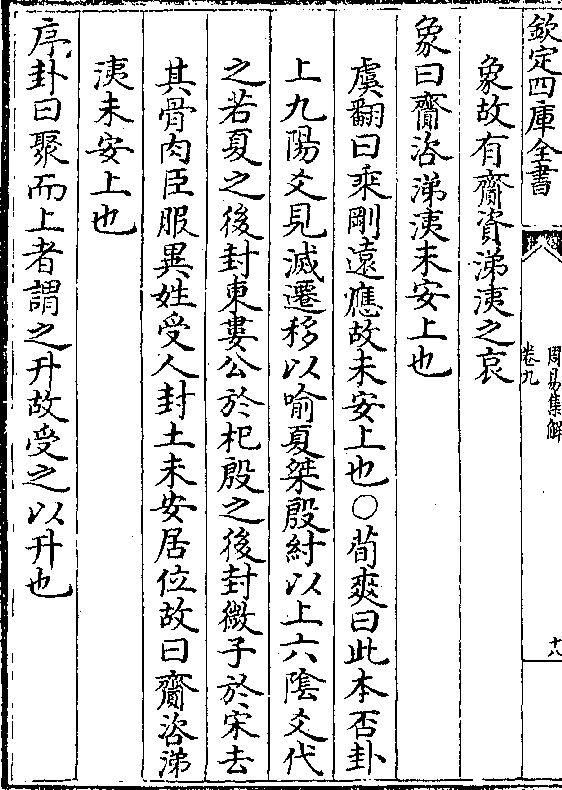 欽定四庫全書
周易集解
卷九
十八
象故有齎資涕洟之哀
象曰齎咨涕洟未安上也
虞翻曰乘剛遠應故未安上也○荀爽曰此本否卦
上九陽爻見滅遷移以喻夏桀殷紂以上六陰爻代
之若夏之後封東婁公於杞殷之後封微子於宋去
其骨肉臣服異姓受人封土未安居位故曰齎咨涕
洟未安上也
序卦曰聚而上者謂之升故受之以升也